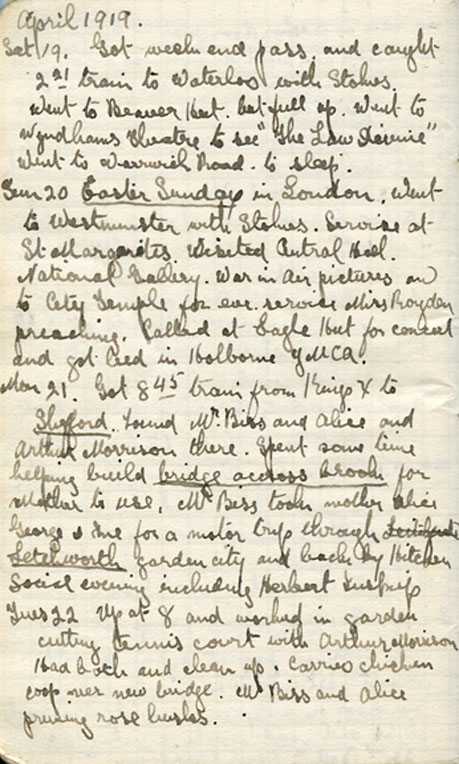 April 1919.
Sat 19. Got week end pass and caught
2 21 train to Waterloo with Stokes.
Went to Beaver Hut. but full up. Went to
Wyndhams Theatre to see "The Law Divine"
Went to Warwick Road. to sleep.
Sun 20 Easter Sunday in London. Went
to Westminster with Stokes. Service at
St Margarites. Visited Central Hall.
National Gallery. War in Air pictures on
to City Temple for eve. service Miss Royden
preaching. Called at Eagle Hut for concert
and got bed in Holborne YMCA.
Mon 21. Got 8 45 train from Kings X to
Shefford. Found Mr. Biss and Alice and
Arthur Morrison there. Spent some time
helping build bridge accross brook for
Mother to use. Mr Biss took mother Alice
George & me for a motor trip through
Letchworth garden city and back by Hitchin
Social evening including Herbert
Tues 22 Up at 8 and worked in garden
cutting tennis court with Arthur Morrison
Had bath and clean up. Carried chicken
coop over new bridge. Mr Biss and Alice
pruning rose bushes.